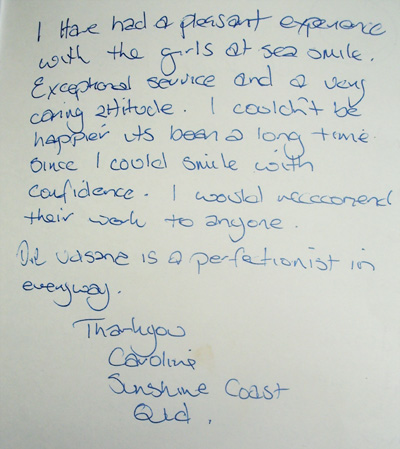 I Have had a pleasant experience
with the girls at sea smile.
Exceptional service and a very
caring attitude. I couldn't be
happier its been a long time
since I could smile with
confidence. I would reccomend
their work to anyone.
is a perfetionist in
everyway.
Thankyou
Caroline
Sunshine Coast
Qld.